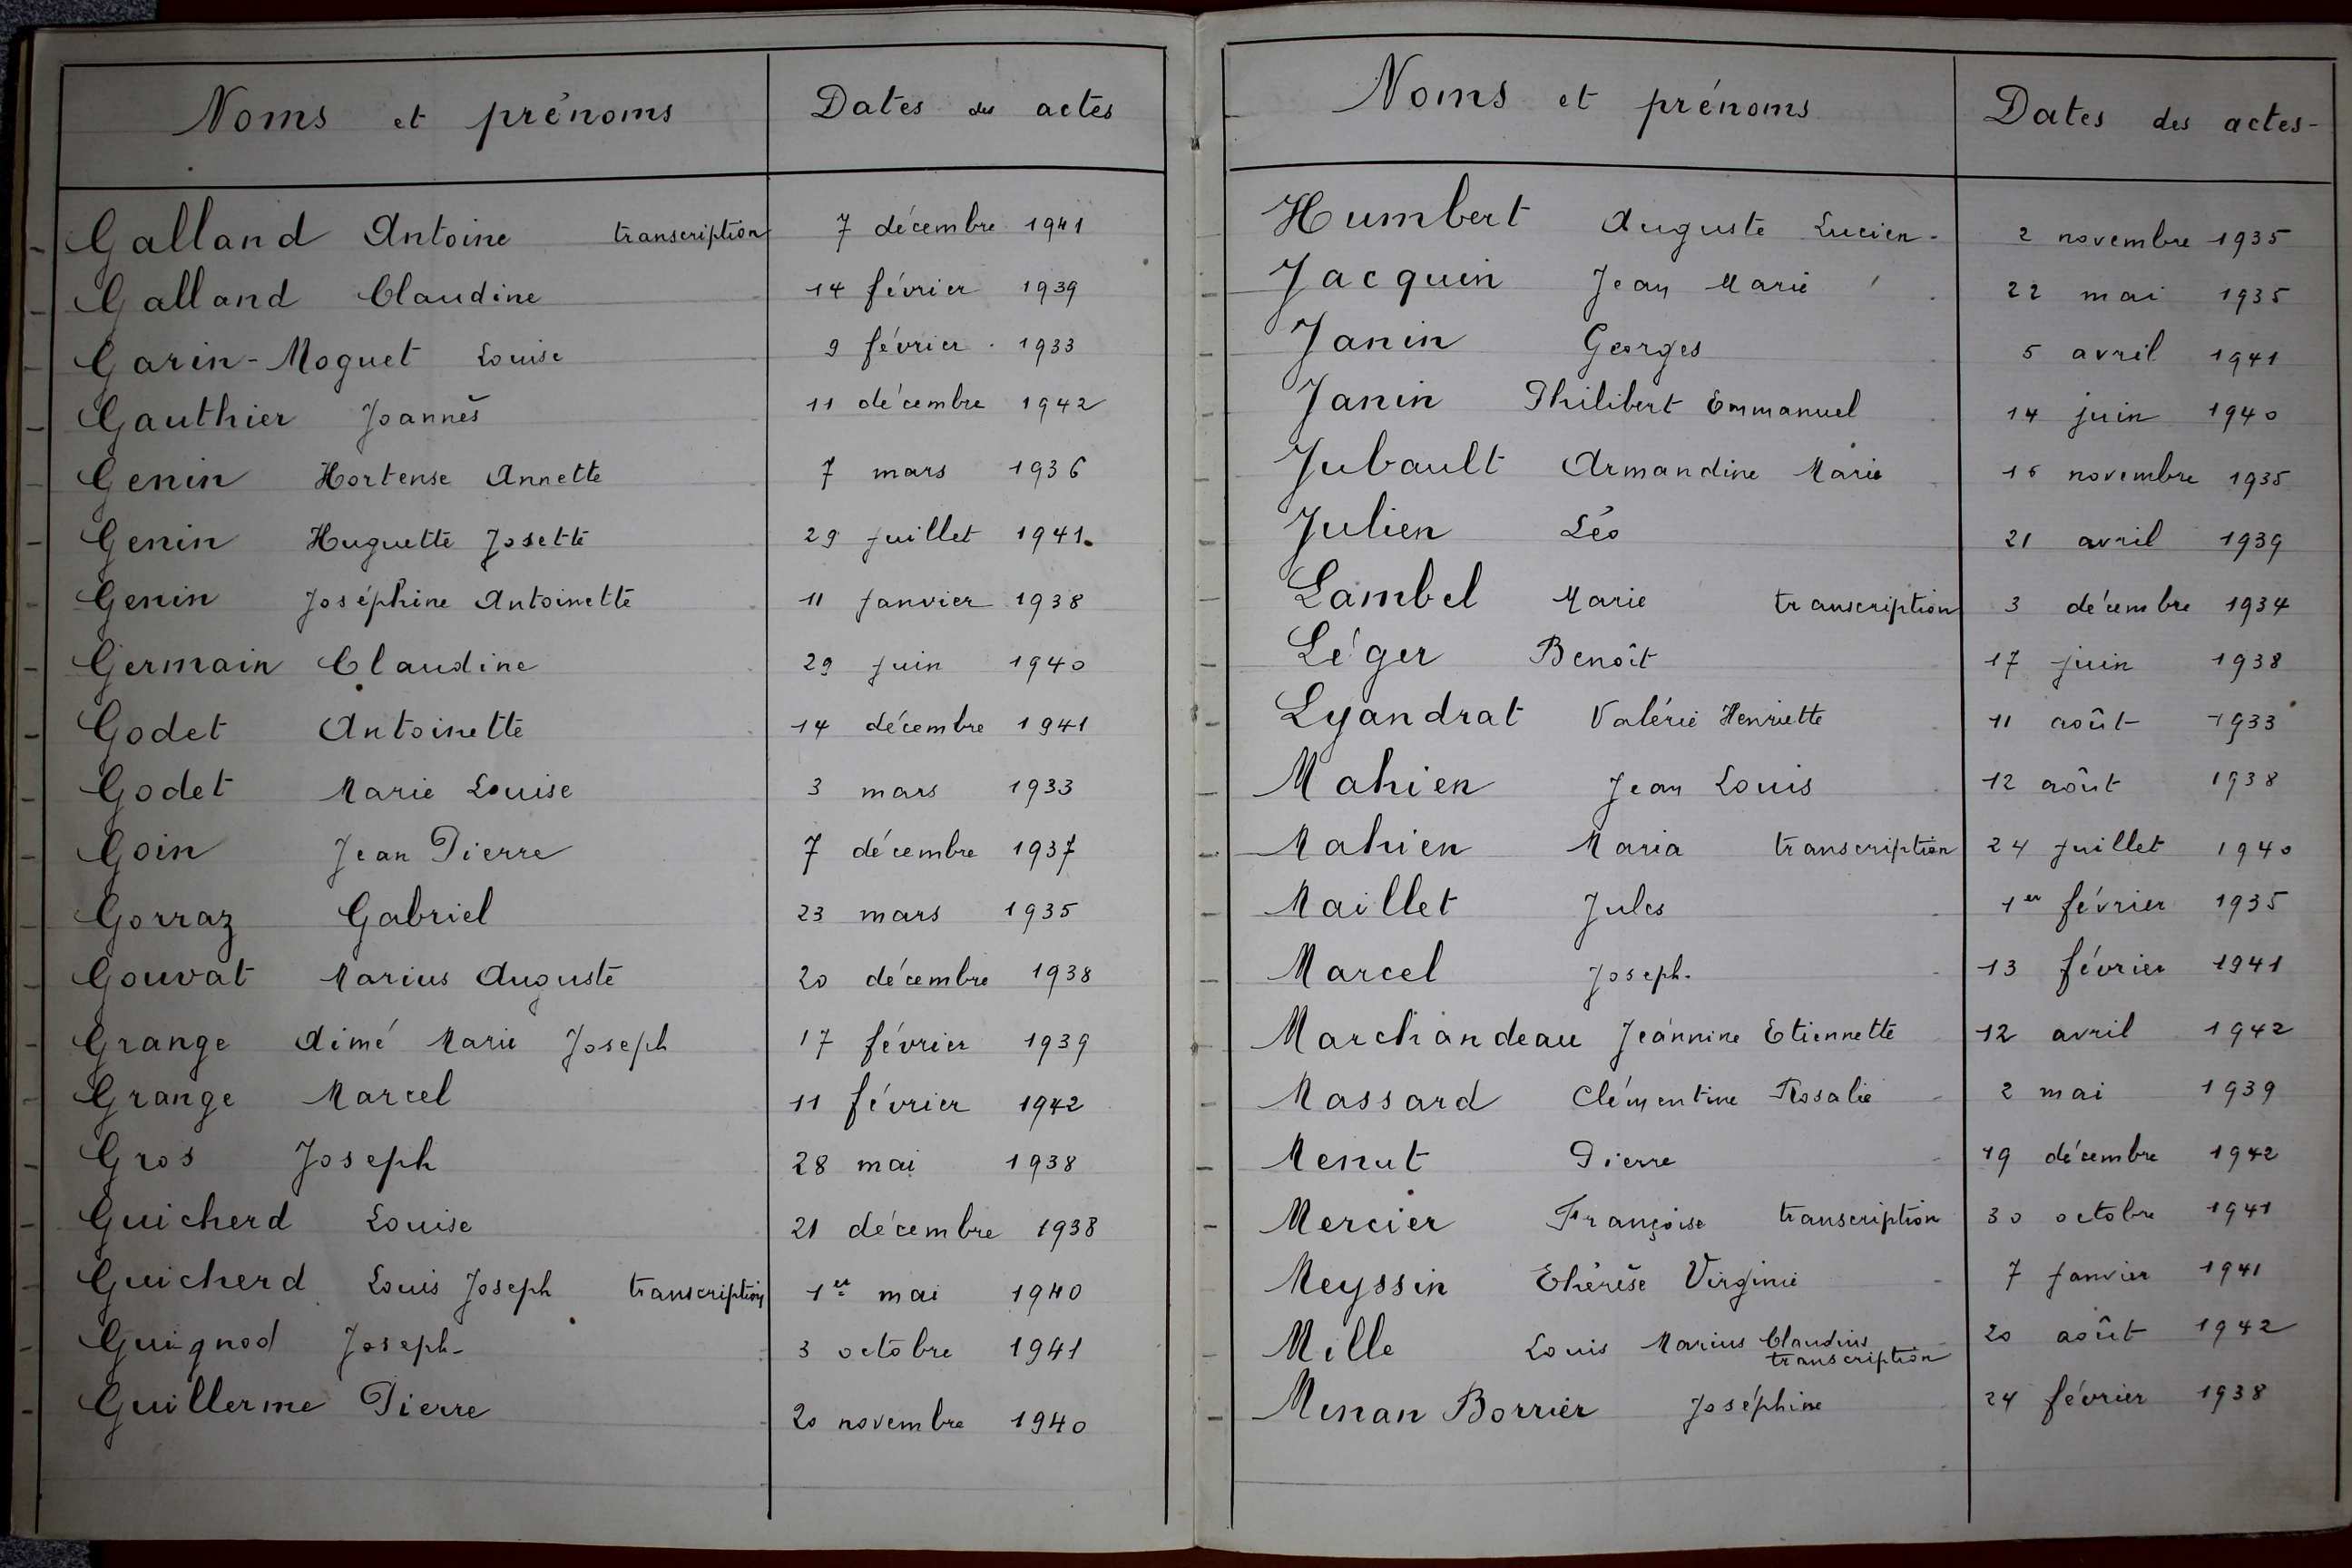 Noms et prénoms Dates des actes
Galland Antoine transcription 7 décembre 1941
Galland Claudine 14 février 1939
Garin-Moguet Louise 9 février 1933
Gauthier Joannès 11 décembre 1942
Genin Hortense Annette 7 mars 1936
Genin Huguette Josette 29 juillet 1941
Genin Joséphine Antoinette 11 janvier 1938
Germain Claudine 29 juin 1940
Godet Antoinette 14 décembre 1941
Godet Marie Louise 3 mars 1933
Goin Jean Pierre 7 décembre 1937
Gorraz Gabriel 23 mars 1935
Gouvat Marius Auguste 20 décembre 1938
Grange Aimé Marie Joseph 17 février 1939
Grange Marcel 11 février 1942
Gros Joseph 28 mai 1938
Guicherd Louise 21 décembre 1938
Guicherd Louis Joseph transcription 1er mai 1940
Guignod Joseph 3 octobre 1941
Guillerme Pierre 20 novembre 1940
Noms et prénoms Dates des actes
Humbert Auguste Lucien 2 novembre 1935
Jacquin Jean Marie 22 mai 1935
Janin Georges 5 avril 1941
Janin Philibert Emmanuel 14 juin 1940
Jubault Armandine Marie novembre 1935
Julien Léo 21 avril 1939
Lambel Marie transcription 3 décembre 1934
Léger Benoît 17 juin 1938
Lyandrat Valérie Henriette 11 août 1933
Mahien Jean Louis 12 août 1938
Mahien Maria transcription 24 juillet 1940
Maillet Jules 1er février 1935
Marcel Joseph 13 février 1941
Marchandeau Jeannine Etiennette 12 avril 1942
Massard Clémentine Rosalie 2 mai 1939
Menut Pierre 19 décembre 1942
Mercier Françoise transcription 30 octobre 1941
Meyssin Thérèse Virginie 7 janvier 1941
Mille Louis Marius Claudius 20 août 1942
transcription
Minan Borrier Joséphine 24 février 1938